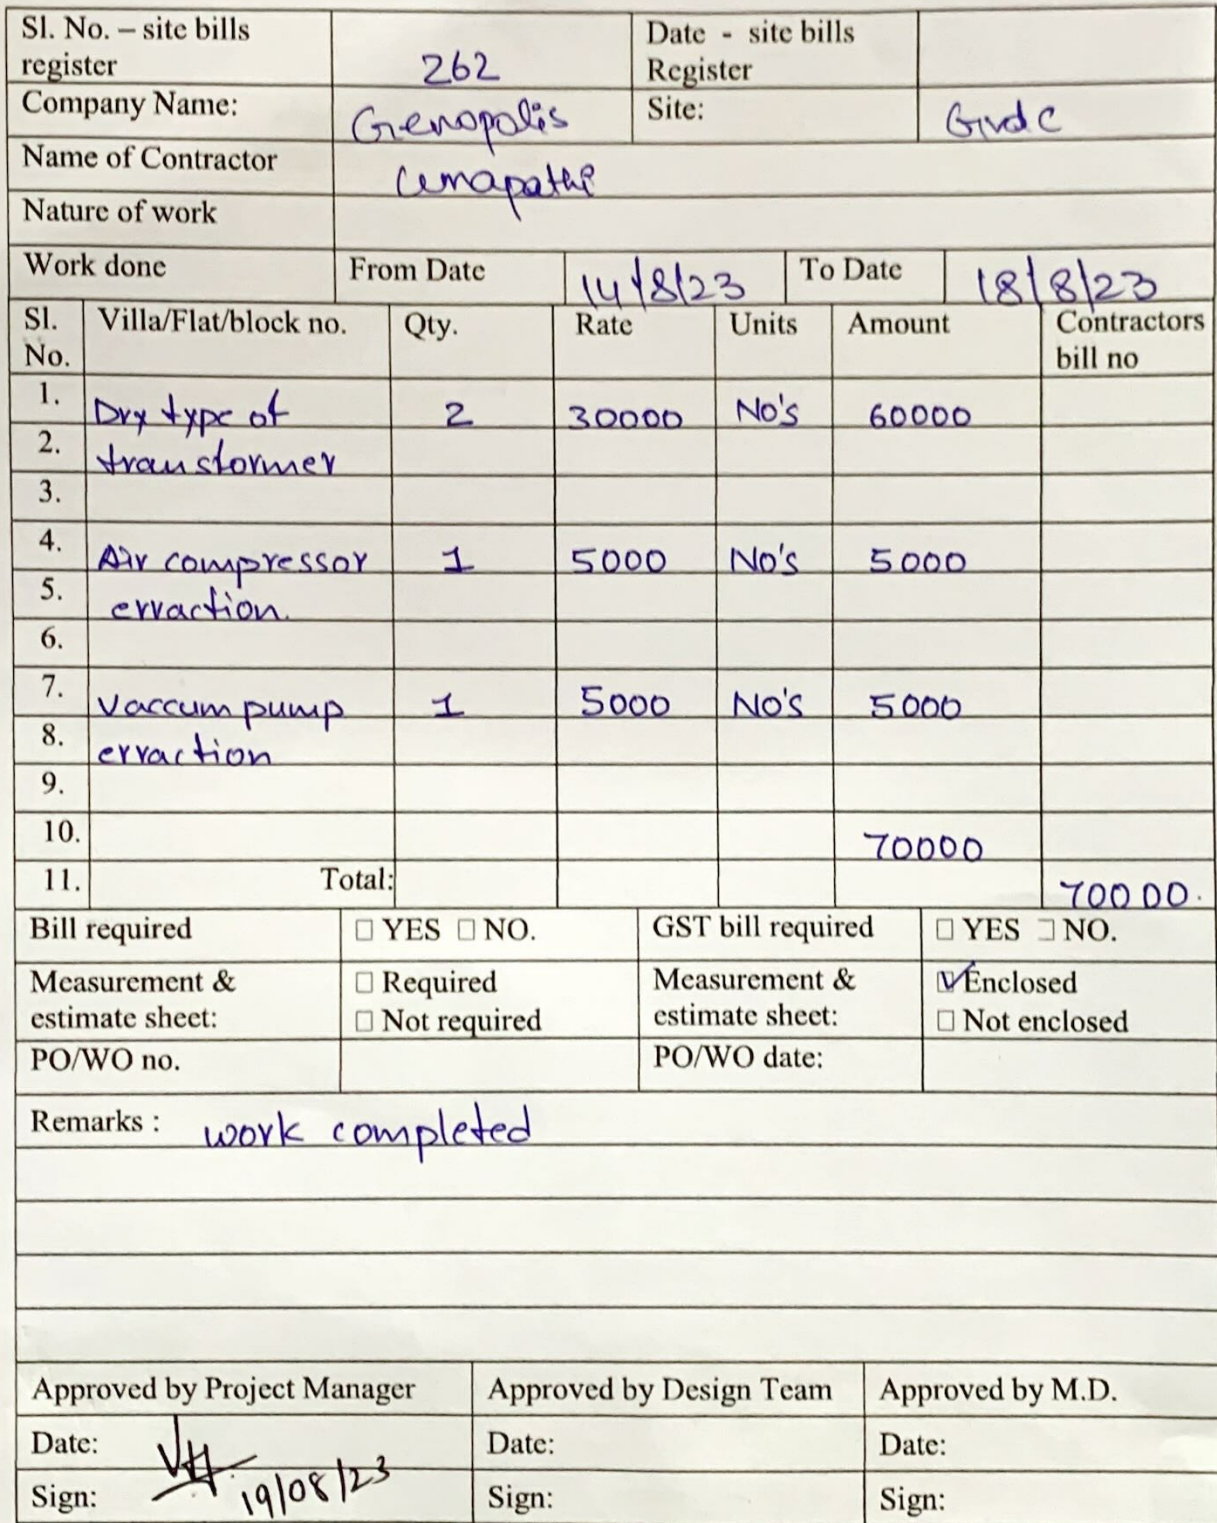 Sl. No. – site bills register 262 Date - site bills Register
Company Name: Genopolis Site: Gvdc
Name of Contractor umapathi
Nature of work
Work done From Date 14/8/23 To Date 18/8/23
Sl. No. Villa/Flat/block no. Qty. Rate Units Amount Contractors bill no
1. Dry type of 2 30000 No's 60000
2. transformer
3.
4. Air compressor 1 5000 No's 5000
5. erraction.
6.
7. Vaccum pump 1 5000 No's 5000
8. erraction
9.
10. 70000
11. Total: 70000.
Bill required ☐ YES ☐ NO. GST bill required ☐ YES ☐ NO.
Measurement & estimate sheet: ☐ Required ☐ Not required Measurement & estimate sheet: ☑ Enclosed ☐ Not enclosed
PO/WO no. PO/WO date:
Remarks : work completed
Approved by Project Manager Approved by Design Team Approved by M.D.
Date: Date: Date:
Sign: 19/08/23 Sign: Sign: